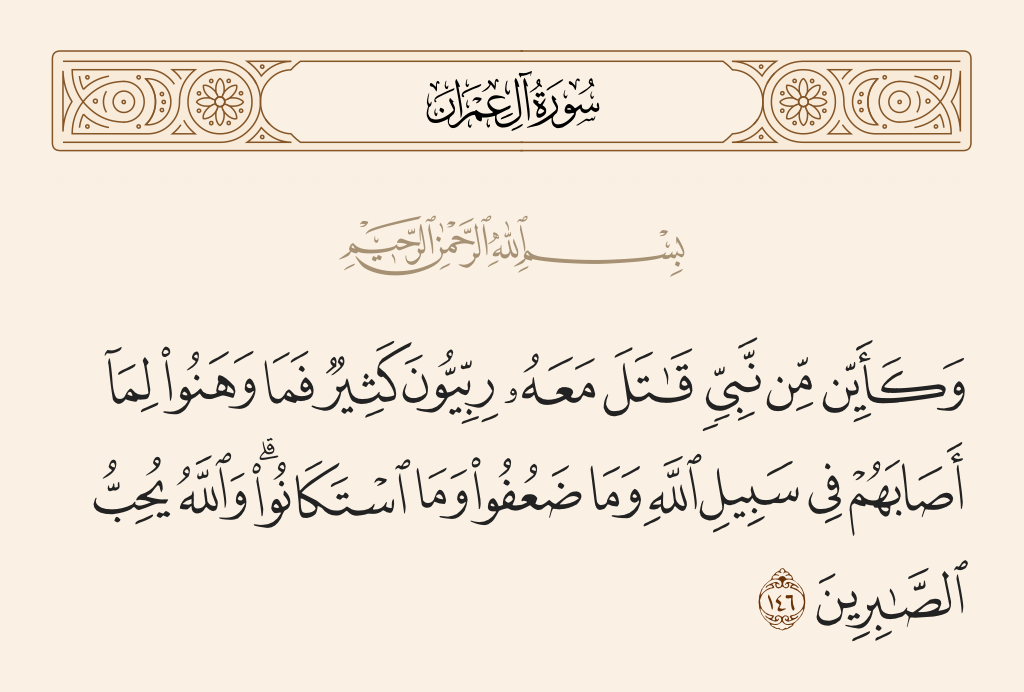 سُورَةُ آلِ عِمْرَان
بِسْمِ ٱللَّهِ ٱلرَّحْمَٰنِ ٱلرَّحِيمِ
وَكَأَيِّن مِّن نَّبِىٍّ قَٰتَلَ مَعَهُۥ رِبِّيُّونَ كَثِيرٌ فَمَا وَهَنُوا۟ لِمَآ
أَصَابَهُمْ فِى سَبِيلِ ٱللَّهِ وَمَا ضَعُفُوا۟ وَمَا ٱسْتَكَانُوا۟ ۗ وَٱللَّهُ يُحِبُّ
ٱلصَّٰبِرِينَ ١٤٦